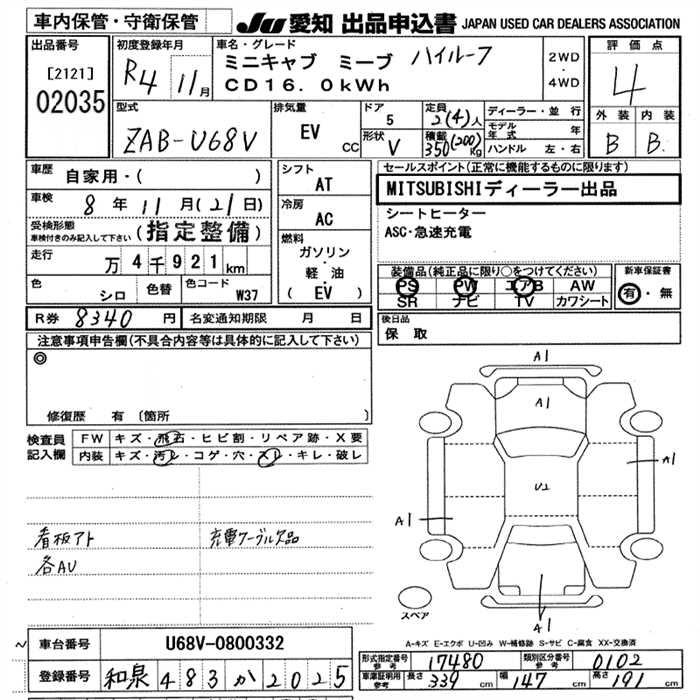 車内保管・守衛保管
JU 愛知 出品申込書 JAPAN USED CAR DEALERS ASSOCIATION
出品番号
[2121]
02035
初度登録年月
R4 11月
車名・グレード
ミニキャブ ミーブ ハイルーフ
CD16.0kWh
2WD
・
4WD
評価点
4
外装 内装
B B
型式
ZAB-U68V
排気量
EV cc
ドア
5
形状
V
定員
2(4)人
積載
350(200)kg
ディーラー・並行
モデル年式 年
ハンドル 左・右
車歴
自家用・( )
車検
8年11月(21日)
受検形態
車検付きのみ記入して下さい
(指定整備)
走行
万4千921km
色
シロ
色替
色コード
W37
シフト
AT
冷房
AC
燃料
ガソリン
・
軽油
・
(EV)
セールスポイント(正常に機能するものに限ります)
MITSUBISHIディーラー出品
シートヒーター
ASC・急速充電
装備品(純正品に限り○をつけてください)
PS PW エアB AW
SR ナビ TV カワシート
新車保証書
有・無
R券 8340円
名変通知期限 月 日
後日品
保 取
注意事項申告欄(不具合内容等は具体的に記入して下さい)
◎
修復歴 有 〔箇所 〕
検査員記入欄
FW キズ・飛石・ヒビ割・リペア跡・X要
内装 キズ・汚レ・コゲ・穴・スレ・キレ・破レ
看板アト 充電ケーブル欠品
各AU
A1
A1
A1
U2
A1
A1
スペア
A-キズ E-エクボ U-凹み W-補修跡 S-サビ C-腐食 XX-交換済
~ 車台番号 U68V-0800332
登録番号 和泉 483 か 2025
形式指定番号 参考 17480
類別区分番号 参考 0102
車庫証明用 参考 長さ 339cm 幅 147cm 高さ 191cm